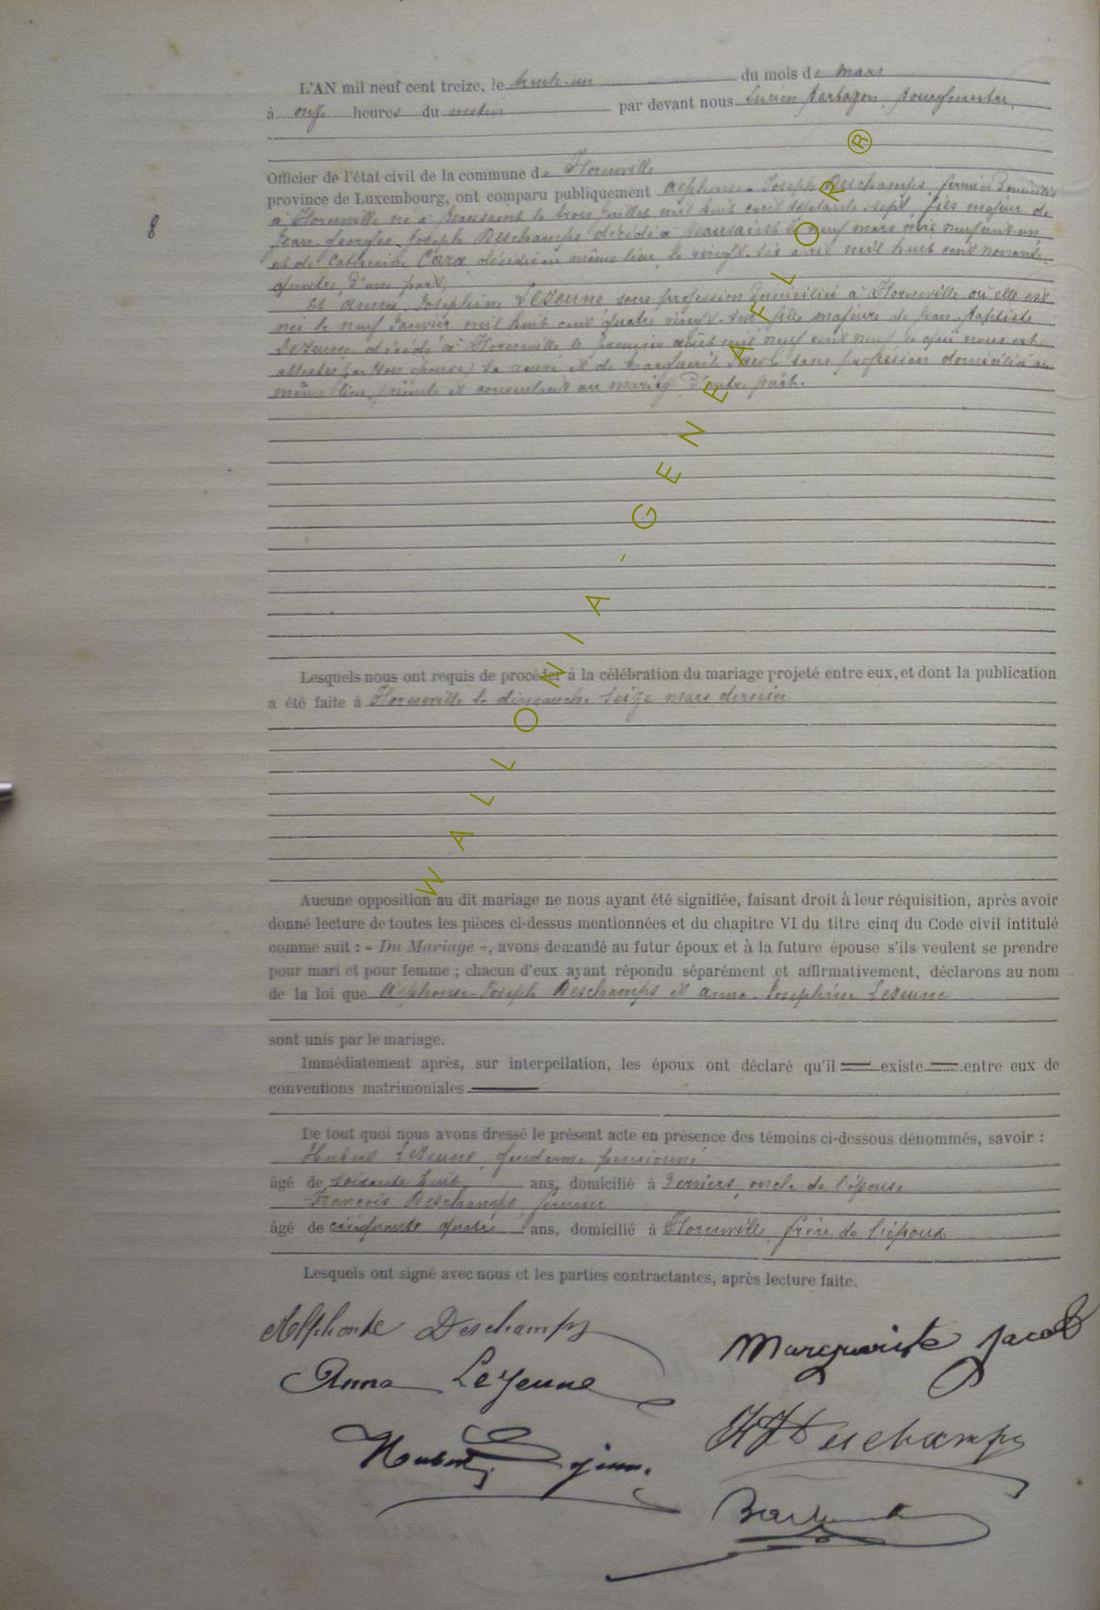 L'AN mil neuf cent treize, le trente-un du mois de mars
à onze heures du matin par devant nous Lucien bourgmestre,
Officier de l'état civil de la commune de Florenville
province de Luxembourg, ont comparu publiquement Alphonse-Joseph Deschamps, fermier domicilié
8
à Florenville né à Beausaint le trois juillet mil huit cent septante-sept, fils majeur de
Jean-Georges-Joseph Deschamps décédé à Beausaint le neuf mars mil neuf cent un
et de Catherine décédée au même lieu, le vingt-six mil huit cent nonante-
quatre, d'une part,
Et Anna-Joséphine LeJeune sans profession domiciliée à Florenville où elle est
née le neuf janvier mil huit cent quatre vingt fille majeure de Jean-Baptiste
LeJeune décédé à Florenville le premier août mil neuf cent neuf ce qui nous est
attesté par et de Marguerite Jacob sans profession domiciliée au
même lieu, présente et consentant au mariage d'autre part.
Lesquels nous ont requis de procéder à la célébration du mariage projeté entre eux, et dont la publication
a été faite à Florenville le dimanche seize mars dernier
Aucune opposition au dit mariage ne nous ayant été signifiée, faisant droit à leur réquisition, après avoir
donné lecture de toutes les pièces ci-dessus mentionnées et du chapitre VI du titre cinq du Code civil intitulé
comme suit : « Du Mariage », avons demandé au futur époux et à la future épouse s'ils veulent se prendre
pour mari et pour femme ; chacun d'eux ayant répondu séparément et affirmativement, déclarons au nom
de la loi que Alphonse-Joseph Deschamps et Anna-Joséphine LeJeune
sont unis par le mariage.
Immédiatement après, sur interpellation, les époux ont déclaré qu'il existe entre eux de
conventions matrimoniales
De tout quoi nous avons dressé le présent acte en présence des témoins ci-dessous dénommés, savoir :
Hubert LeJeune, gendarme pensionné
âgé de soixante huit ans, domicilié à oncle de l'épouse
François Deschamps, fermier
âgé de cinquante quatre ans, domicilié à Florenville, frère de l'époux
Lesquels ont signé avec nous et les parties contractantes, après lecture faite.
Alphonse Deschamps
Marguerite Jacob
Anna LeJeune
Deschamps
Hubert Lejeune
WALLONIA-GENEAFLOR®